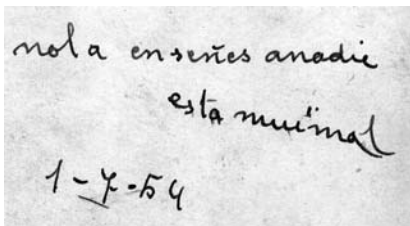 nola enseñes anadie
esta muimal
1-7-54